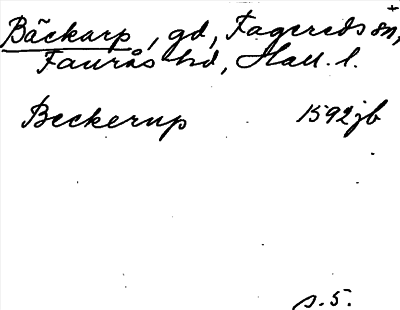 Bäckarp, gd, Fagereds sn,
Faurås hd, Hall. l.
Beckerup 1592 jb
s. 5.